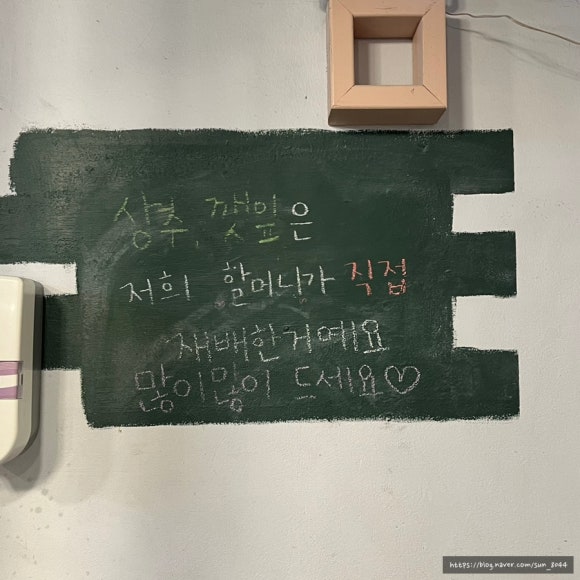 상추, 깻잎은
저희 할머니가 직접
재배한거예요
많이많이 드세요♡
https://blog.naver.com/sun_8044